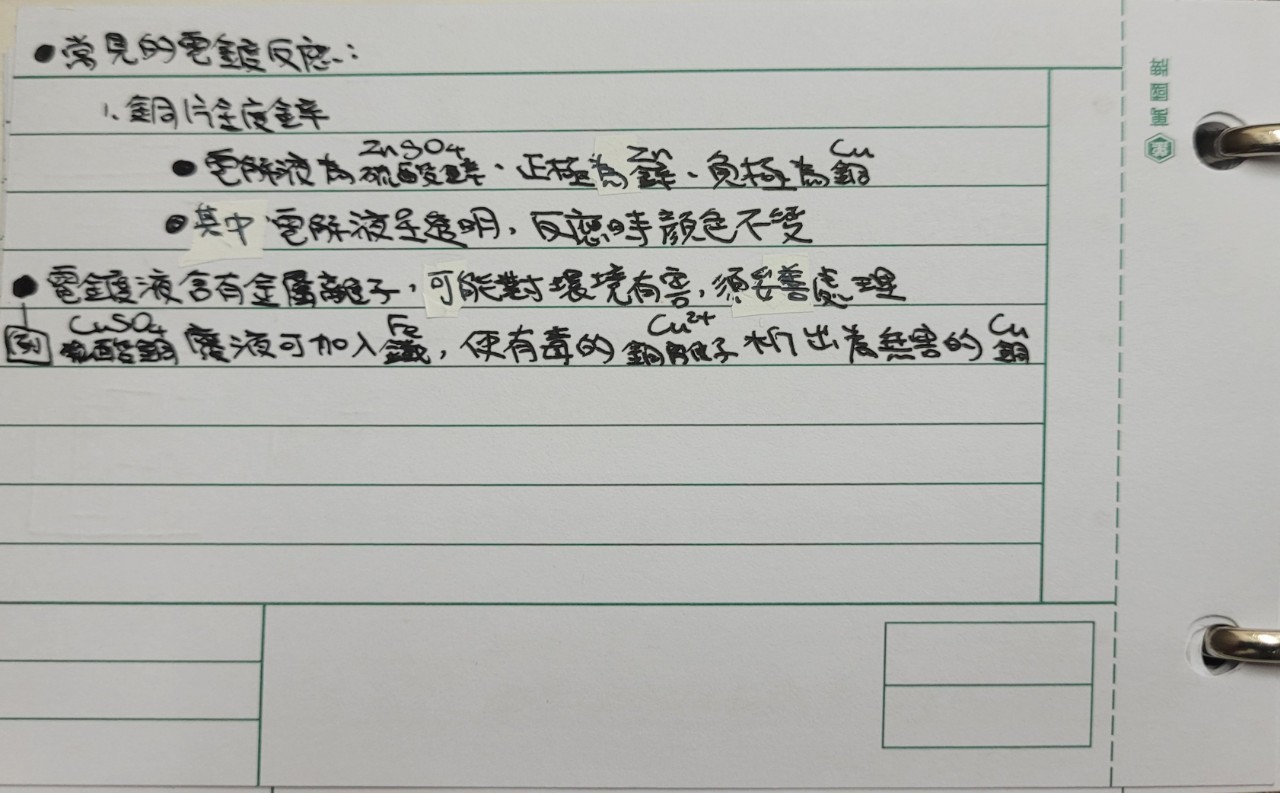 •常見的電鍍反應:
1. 銅片鍍鋅
•電解液為硫酸鋅ZnSO4、正極為鋅Zn、負極為銅Cu
•其中電解液呈透明,反應時顏色不變
•電鍍液含有金屬離子,可能對環境有害,須妥善處理
例 硫酸銅CuSO4廢液可加入鐵Fe,使有毒的銅離子Cu2+析出為無害的銅Cu
萬國牌